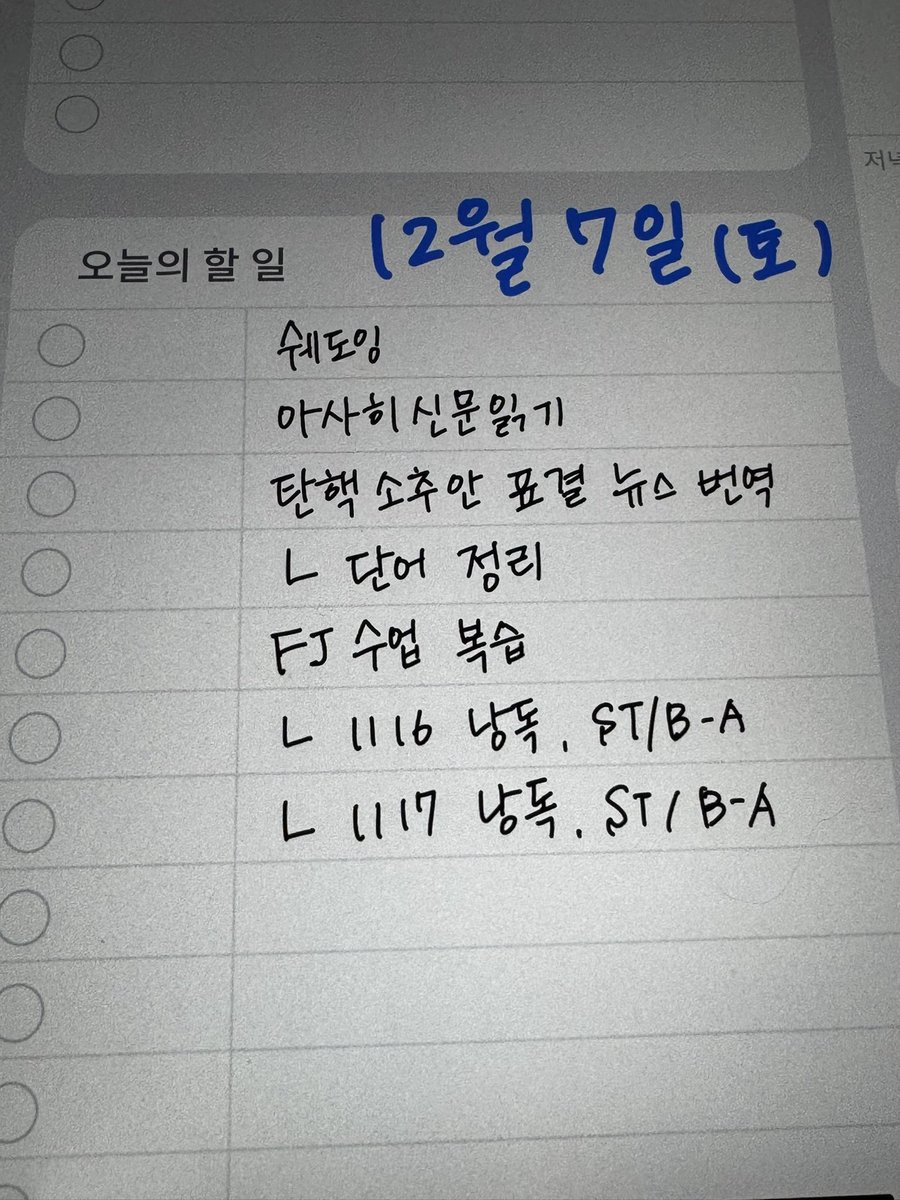 저녁
오늘의 할 일 12월 7일 (토)
쉐도잉
아사히신문읽기
탄핵 소추안 표결 뉴스 번역
ㄴ 단어 정리
FJ 수업 복습
ㄴ 1116 낭독, ST/B-A
ㄴ 1117 낭독, ST/B-A